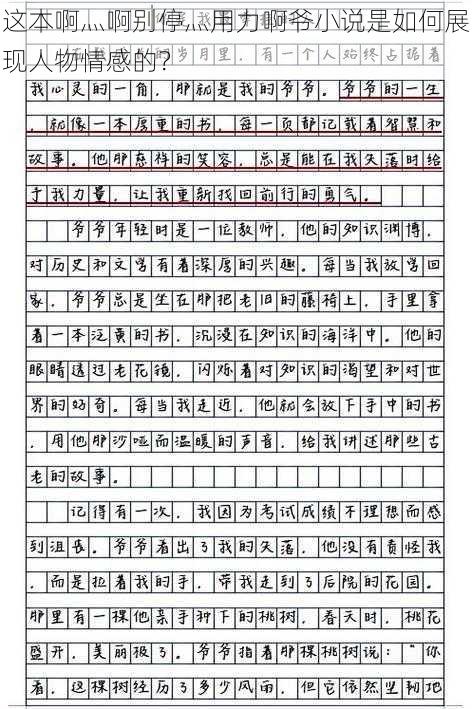 这本啊灬啊别停灬用力啊爷小说是如何展
现人物情感的？
岁月里，有一个人始终占据着
我心灵的一角，那就是我的爷爷。爷爷的一生
，就像一本厚重的书，每一页都记载着智慧和
故事。他那慈祥的笑容，总是能在我失落时给
予我力量，让我重新找回前行的勇气。
爷爷年轻时是一位教师，他的知识渊博，
对历史和文学有着深厚的兴趣。每当我放学回
家，爷爷总是坐在那把老旧的藤椅上，手里拿
着一本泛黄的书，沉浸在知识的海洋中。他的
眼睛透过老花镜，闪烁着对知识的渴望和对世
界的好奇。每当我走近，他就会放下手中的书
，用他那沙哑而温暖的声音，给我讲述那些古
老的故事。
记得有一次，我因为考试成绩不理想而感
到沮丧。爷爷看出了我的失落，他没有责怪我
，而是拉着我的手，带我走到了后院的花园。
那里有一棵他亲手种下的桃树，春天时，桃花
盛开，美丽极了。爷爷指着那棵桃树说：“你
看，这棵树经历了多少风雨，但它依然坚韧地